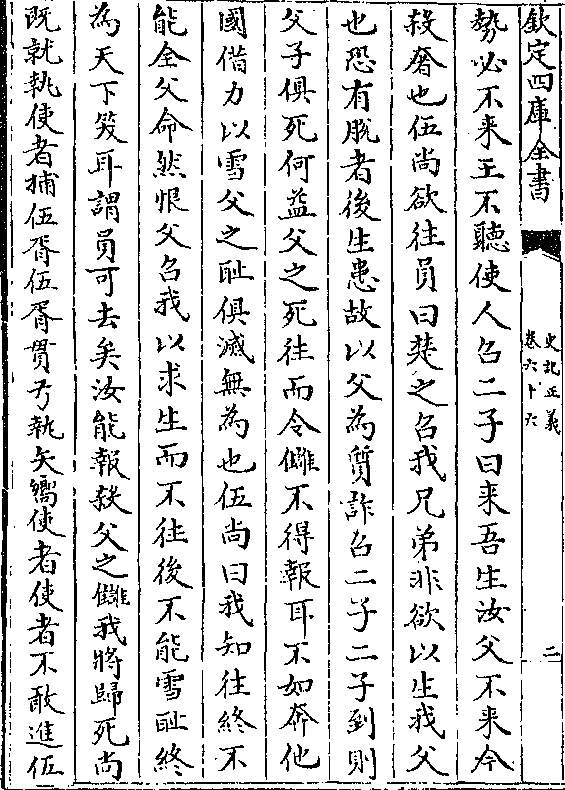 欽定四庫全書
史記正義
卷六十六
二
勢必不来王不聽使人召二子曰来吾生汝父不来今
殺奢也伍尚欲往員曰楚之召我兄弟非欲以生我父
也恐有脫者後生患故以父為質詐召二子二子到則
父子俱死何益父之死往而令讎不得報耳不如奔他
國借力以雪父之恥俱滅無為也伍尚曰我知往終不
能全父命然恨父召我以求生而不往後不能雪恥終
為天下笑耳謂員可去矣汝能報殺父之讎我將歸死尚
既就執使者捕伍胥伍胥貫弓執矢嚮使者使者不敢進伍